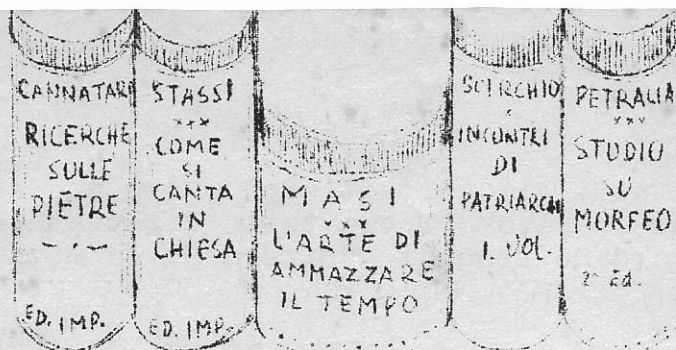 CANNATARI
RICERCHE
SULLE
PIETRE
ED. IMP.
STASSI
COME
SI
CANTA
IN
CHIESA
ED. IMP.
MASI
L'ARTE DI
AMMAZZARE
IL TEMPO
SCIRCHIO
INCONTRI
DI
PATRIARCHI
I. VOL.
PETRALIA
STUDIO
SU
MORFEO
2ª Ed.